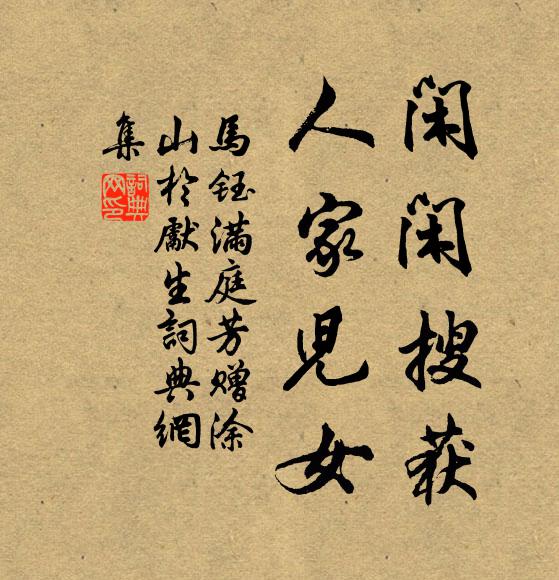 闲闲搜获
人家兒女
馬鈺滿庭芳赠涂
山於獻生詞典網
集
詞典網印